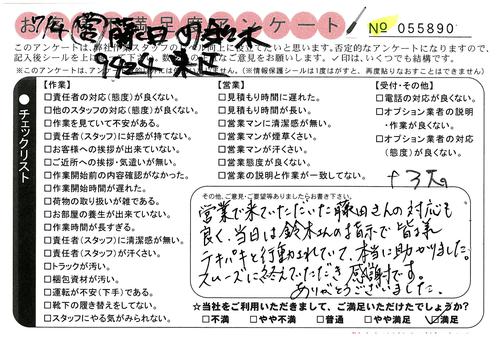 お客様満足度アンケート
No 055890
7/4 (営) 藤田 (日) 鈴木
9424 東征
このアンケートは、弊社作業スタッフのレベル向上に役立てたいと思います。否定的なアンケートになりますので、
記入後シールを上に
ご意見をお願いします。✓印は、いくつでも結構です。
※このアンケートは、
ありません。(※情報保護シールは1度がすと、再度貼りなおすことはできません)
●チェックリスト
【作業】
□責任者の対応(態度)が良くない。
□他のスタッフの対応(態度)が良くない。
□作業を見ていて不安がある。
□責任者(スタッフ)に好感が持てない。
□お客様への挨拶が出来ていない。
□ご近所への挨拶・気遣いが無い。
□作業開始前の内容確認がなかった。
□作業開始時間が遅れた。
□荷物の取り扱いが雑である。
□お部屋の養生が出来ていない。
□作業時間が長すぎる。
□責任者(スタッフ)に清潔感が無い。
□責任者(スタッフ)が汗くさい。
□トラックが汚い。
□梱包資材が汚い。
□運転が不安(下手)である。
□靴下の履き替えをしてない。
□スタッフにやる気がみられない。
【営業】
□見積もり時間に遅れた。
□見積もり時間が長い。
□営業マンに清潔感が無い。
□営業マンが煙草くさい。
□営業マンが汗くさい。
□営業態度が良くない。
□営業の説明と作業が一致してない。
【受付・その他】
□電話の対応が良くない。
□オプション業者の説明
・作業が良くない。
□オプション業者の対応
(態度)が良くない。
+3点
その他、ご意見・ご要望等ありましたらお書き下さい。
営業で来ていただいた藤田さんの対応も
良く、当日は鈴木さんの指示で皆様
テキパキと行動されていて、本当に助かりました。
スムーズに終えていただき感謝です。
ありがとうございました。
☆当社をご利用いただきまして、ご満足いただけたでしょうか?
□不満 □やや不満 □普通 □やや満足 ☑満足